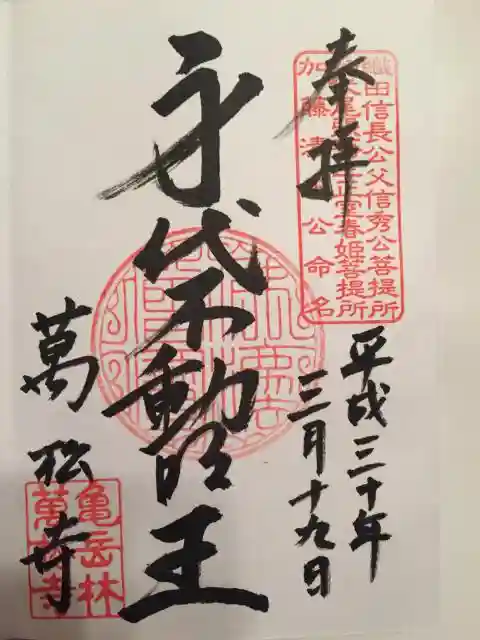 奉拝
織田信長公父信秀公菩提所
春姫菩提所
加藤清公命名
平成三十年
三月十九日
身代不動明王
萬松寺
亀岳林
萬松寺